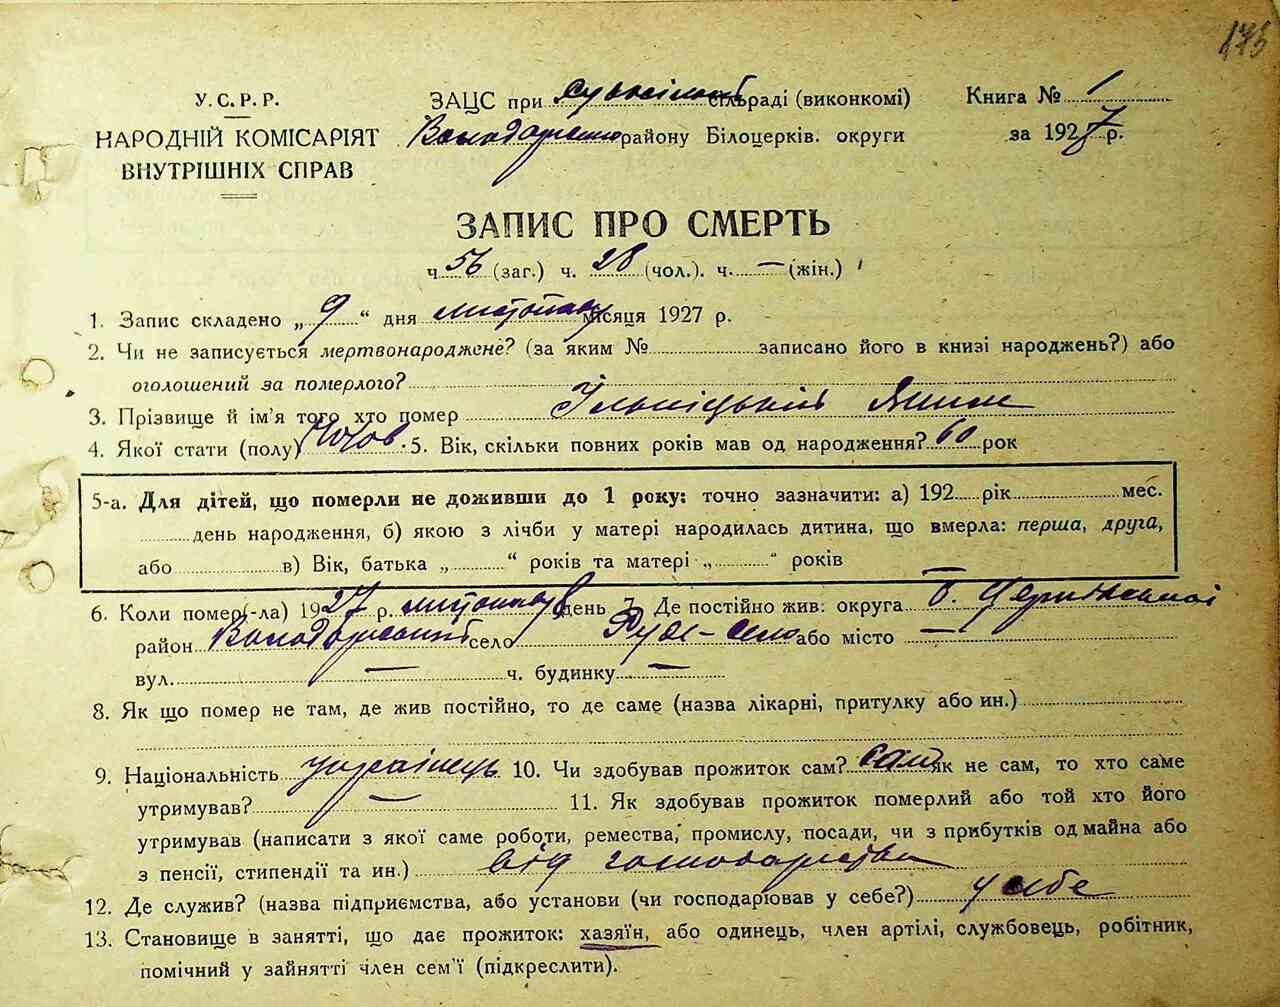 175
У.С.Р.Р.
НАРОДНІЙ КОМІСАРІЯТ
ВНУТРІШНІХ СПРАВ
ЗАЦС при сільраді (виконкомі)
Володарського району Білоцерків. округи
Книга № 1
за 1927 р.
ЗАПИС ПРО СМЕРТЬ
ч. 56 (заг.) ч. 28 (чол.). ч. — (жін.)
1. Запис складено „ 9 “ дня листопаду місяця 1927 р.
2. Чи не записується мертвонароджене? (за яким № записано його в книзі народжень?) або
оголошений за померлого?
3. Прізвище й ім'я того хто помер Ільніцький
4. Якої стати (полу) чолов. 5. Вік, скільки повних років мав од народження? 60 рок
5-а. Для дітей, що померли не доживши до 1 року: точно зазначити: а) 192 рік мес.
день народження, б) якою з лічби у матері народилась дитина, що вмерла: перша, друга,
або в) Вік, батька „ “ років та матері „ “ років
6. Коли помер(-ла) 1927 р. листопаду 8 день 7. Де постійно жив: округа Б. Церківської
район Володарський село Руде-Село або місто —
вул. — ч. будинку —
8. Як що помер не там, де жив постійно, то де саме (назва лікарні, притулку або ин.)
9. Національність українець 10. Чи здобував прожиток сам? сам як не сам, то хто саме
утримував? — 11. Як здобував прожиток померлий або той хто його
утримував (написати з якої саме роботи, ремества, промислу, посади, чи з прибутків од майна або
з пенсії, стипендії та ин.) від господарства
12. Де служив? (назва підприємства, або установи (чи господарював у себе?) у себе
13. Становище в занятті, що дає прожиток: хазяїн, або одинець, член артілі, службовець, робітник,
помічний у зайнятті член сем'ї (підкреслити).